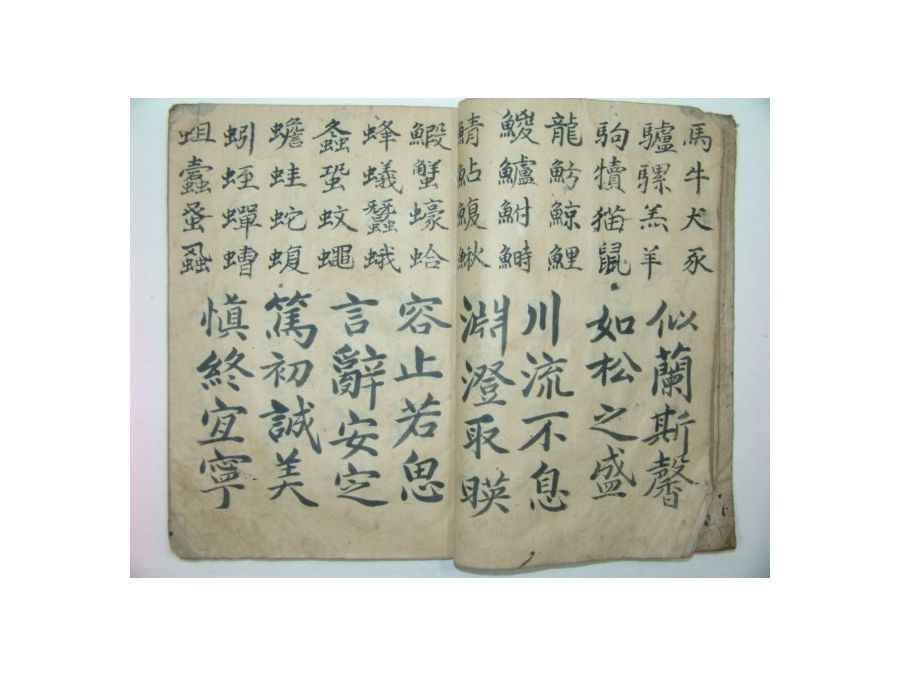 馬牛犬豕
驢騾羔羊
駒犢猫鼠
龍魴鯨鯉
鱸鮒鰣
鯖鮎鰒鰍
鰕蟹蠔蛤
蜂蟻蠶蛾
螽蛩蚊蠅
蟾蛙蛇蝮
蚓蛭蟬螬
蛆蠹蚤蝨
似蘭斯馨
如松之盛
川流不息
淵澄取暎
容止若思
言辭安定
篤初誠美
慎終宜寧